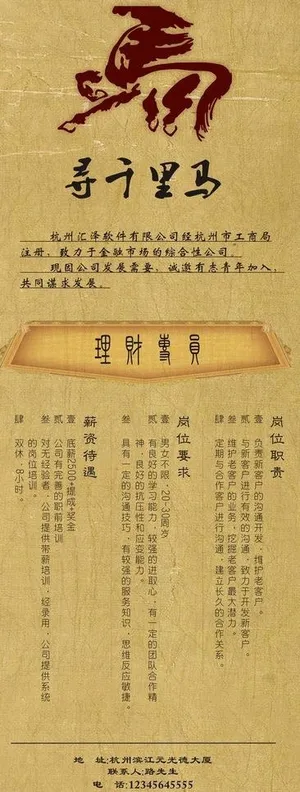 寻千里马
杭州汇泽软件有限公司经杭州市工商局
注册，致力于金融市场的综合性公司。
现因公司发展需要，诚邀有志青年加入，
共同谋求发展。
理財專員
岗位职责
壹 负责新客户的沟通开发，维护老客户。
贰 与新客户进行有效的沟通，致力于开发新客户。
叁 维护老客户的业务，挖掘老客户最大潜力。
肆 定期与合作客户进行沟通，建立长久的合作关系。
岗位要求
壹 男女不限，20-30周岁
贰 有良好的学习能力，较强的进取心，有一定的团队合作精
神，良好的抗压性和应变能力。
叁 具有一定的沟通技巧，有较强的服务知识，思维反应敏捷。
薪资待遇
壹 底薪2500+提成+奖金
贰 公司有完善的职前培训
叁 对无经验者，公司提供带薪培训，经录用，公司提供系统
的岗位培训。
肆 双休，8小时。
地 址:杭州滨江元光德大厦
联系人:路先生
电 话:12345645555